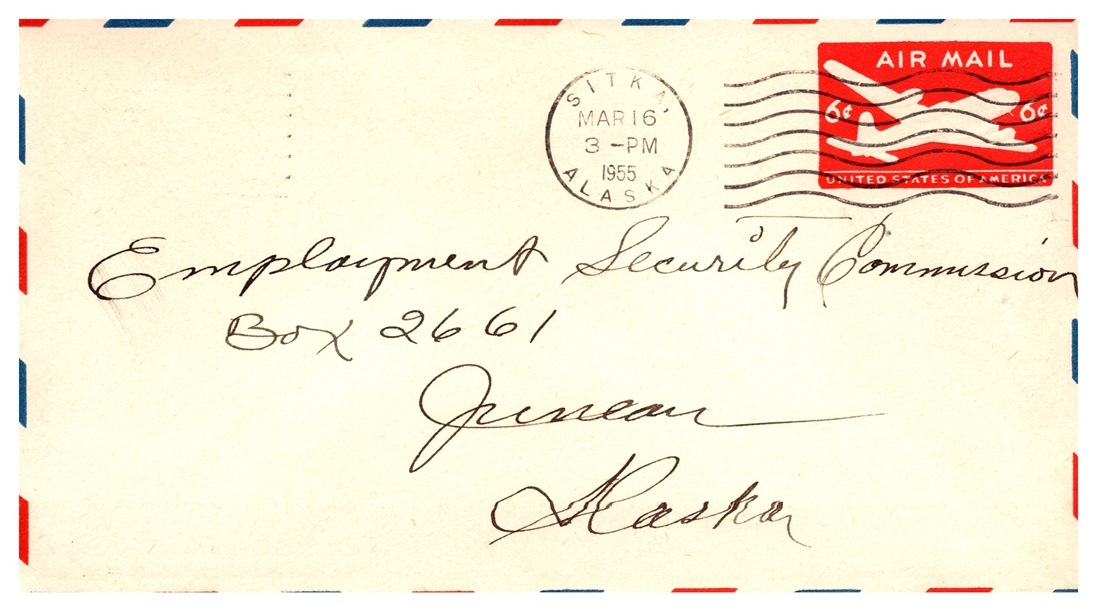 AIR MAIL
6¢ 6¢
UNITED STATES OF AMERICA
SITKA,
MAR 16
3 -PM
1955
ALASKA
Employment Security Commission
Box 2661
Juneau
Alaska